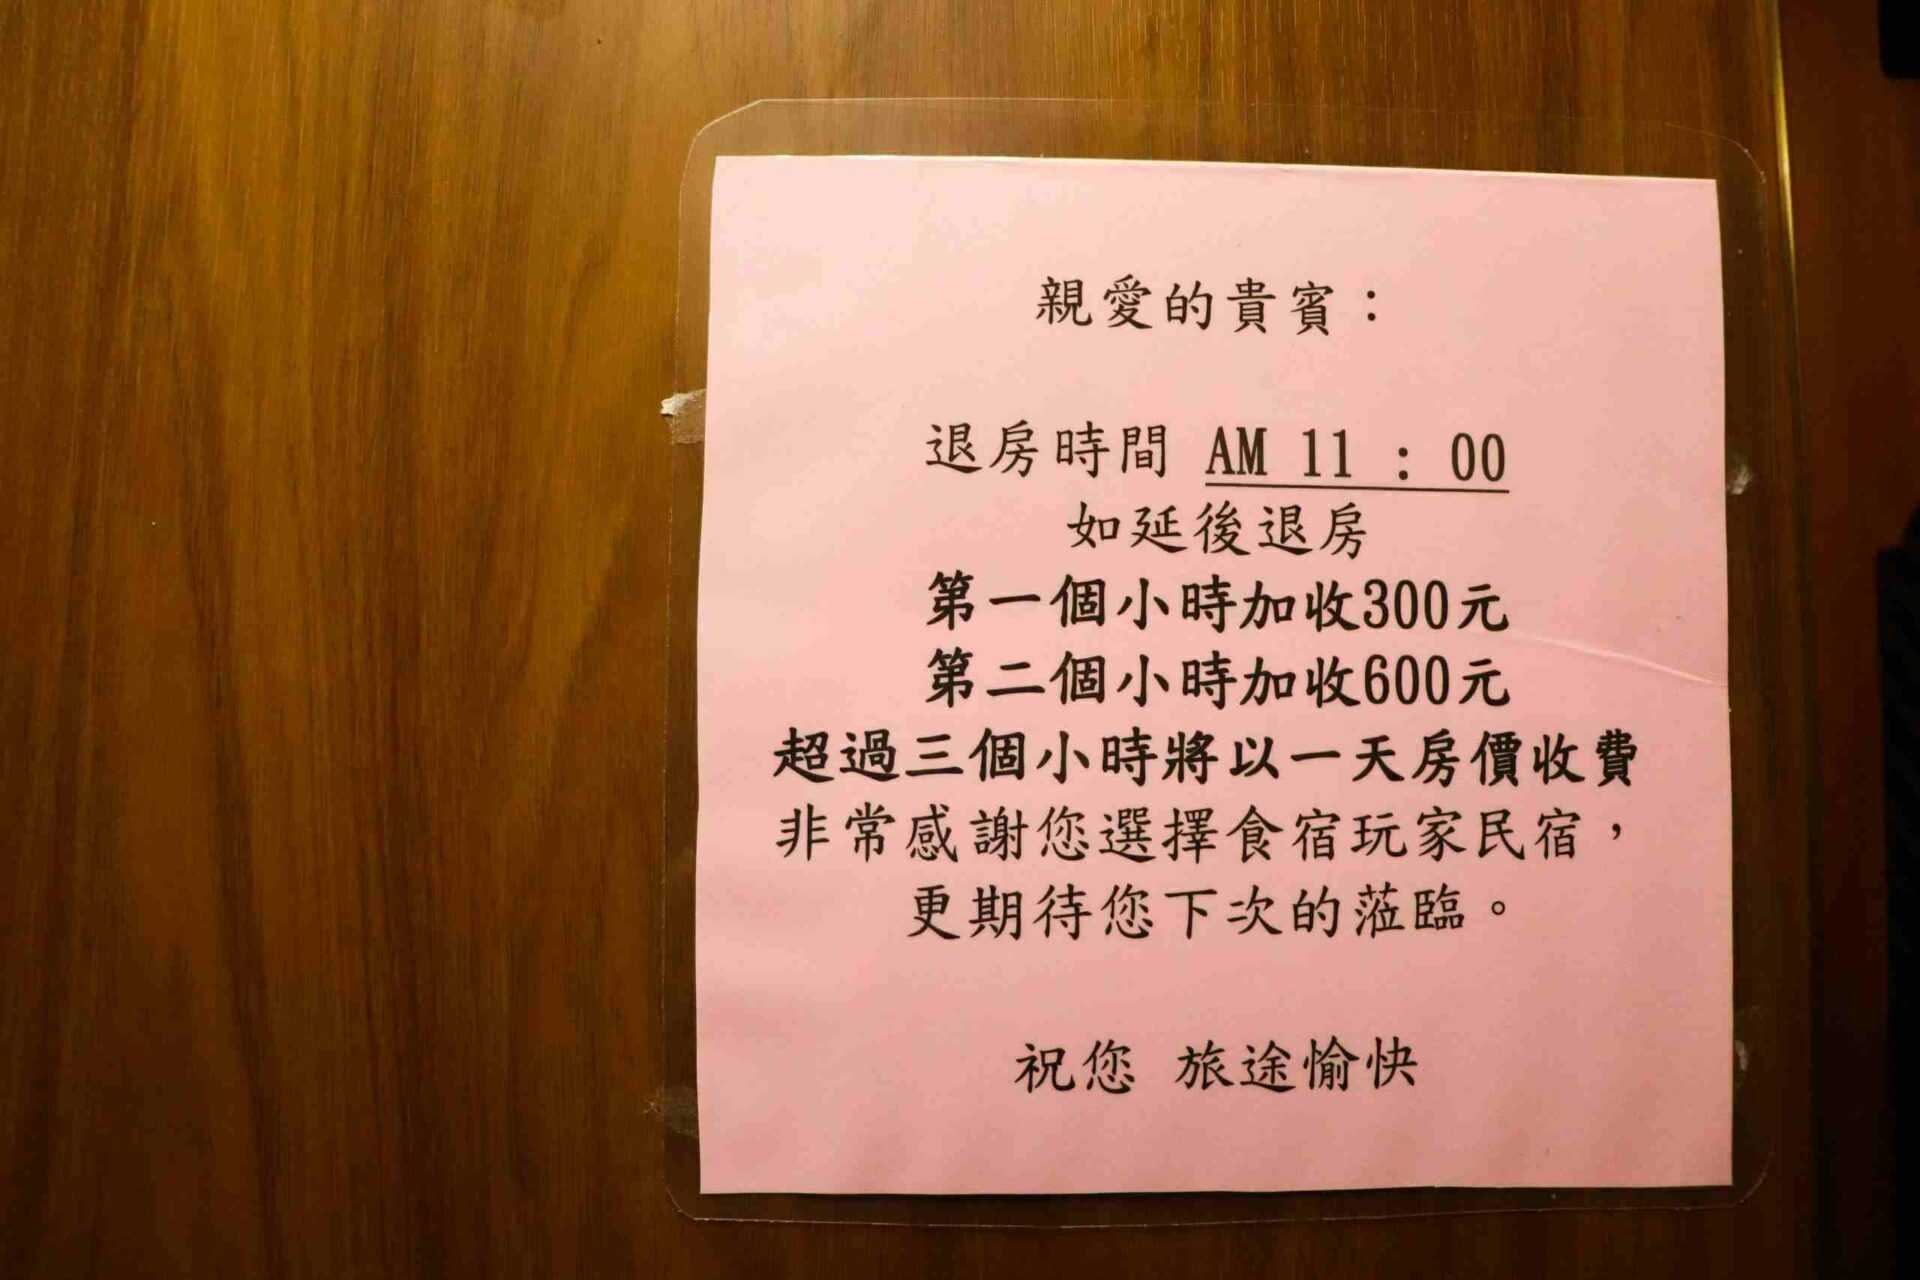 親愛的貴賓：
退房時間 AM 11 : 00
如延後退房
第一個小時加收300元
第二個小時加收600元
超過三個小時將以一天房價收費
非常感謝您選擇食宿玩家民宿，
更期待您下次的蒞臨。
祝您 旅途愉快